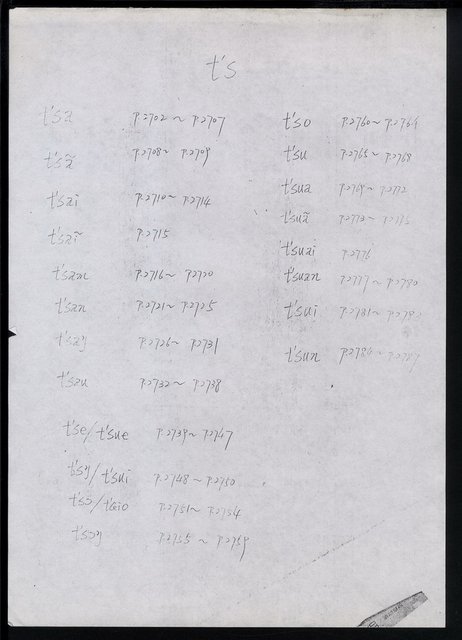 t's
t'sa p.2702~p.2707
t'sã p.2708~p.2709
t'sai p.2710~p.2714
t'saĩ p.2715
t'sam p.2716~p.2720
t'san p.2721~p.2725
t'saŋ p.2726~p.2731
t'sau p.2732~p.2738
t'se/t'sue p.2739~p.2747
t'sŋ/t'sui p.2748~p.2750
t'sɔ/t'ɕio p.2751~p.2754
t'sɔŋ p.2755~p.2759
t'so p.2760~p.2764
t'su p.2765~p.2768
t'sua p.2769~p.2772
t'suã p.2773~p.2775
t'suai p.2776
t'suan p.2777~p.2780
t'sui p.2781~p.2783
t'sun p.2784~p.2787